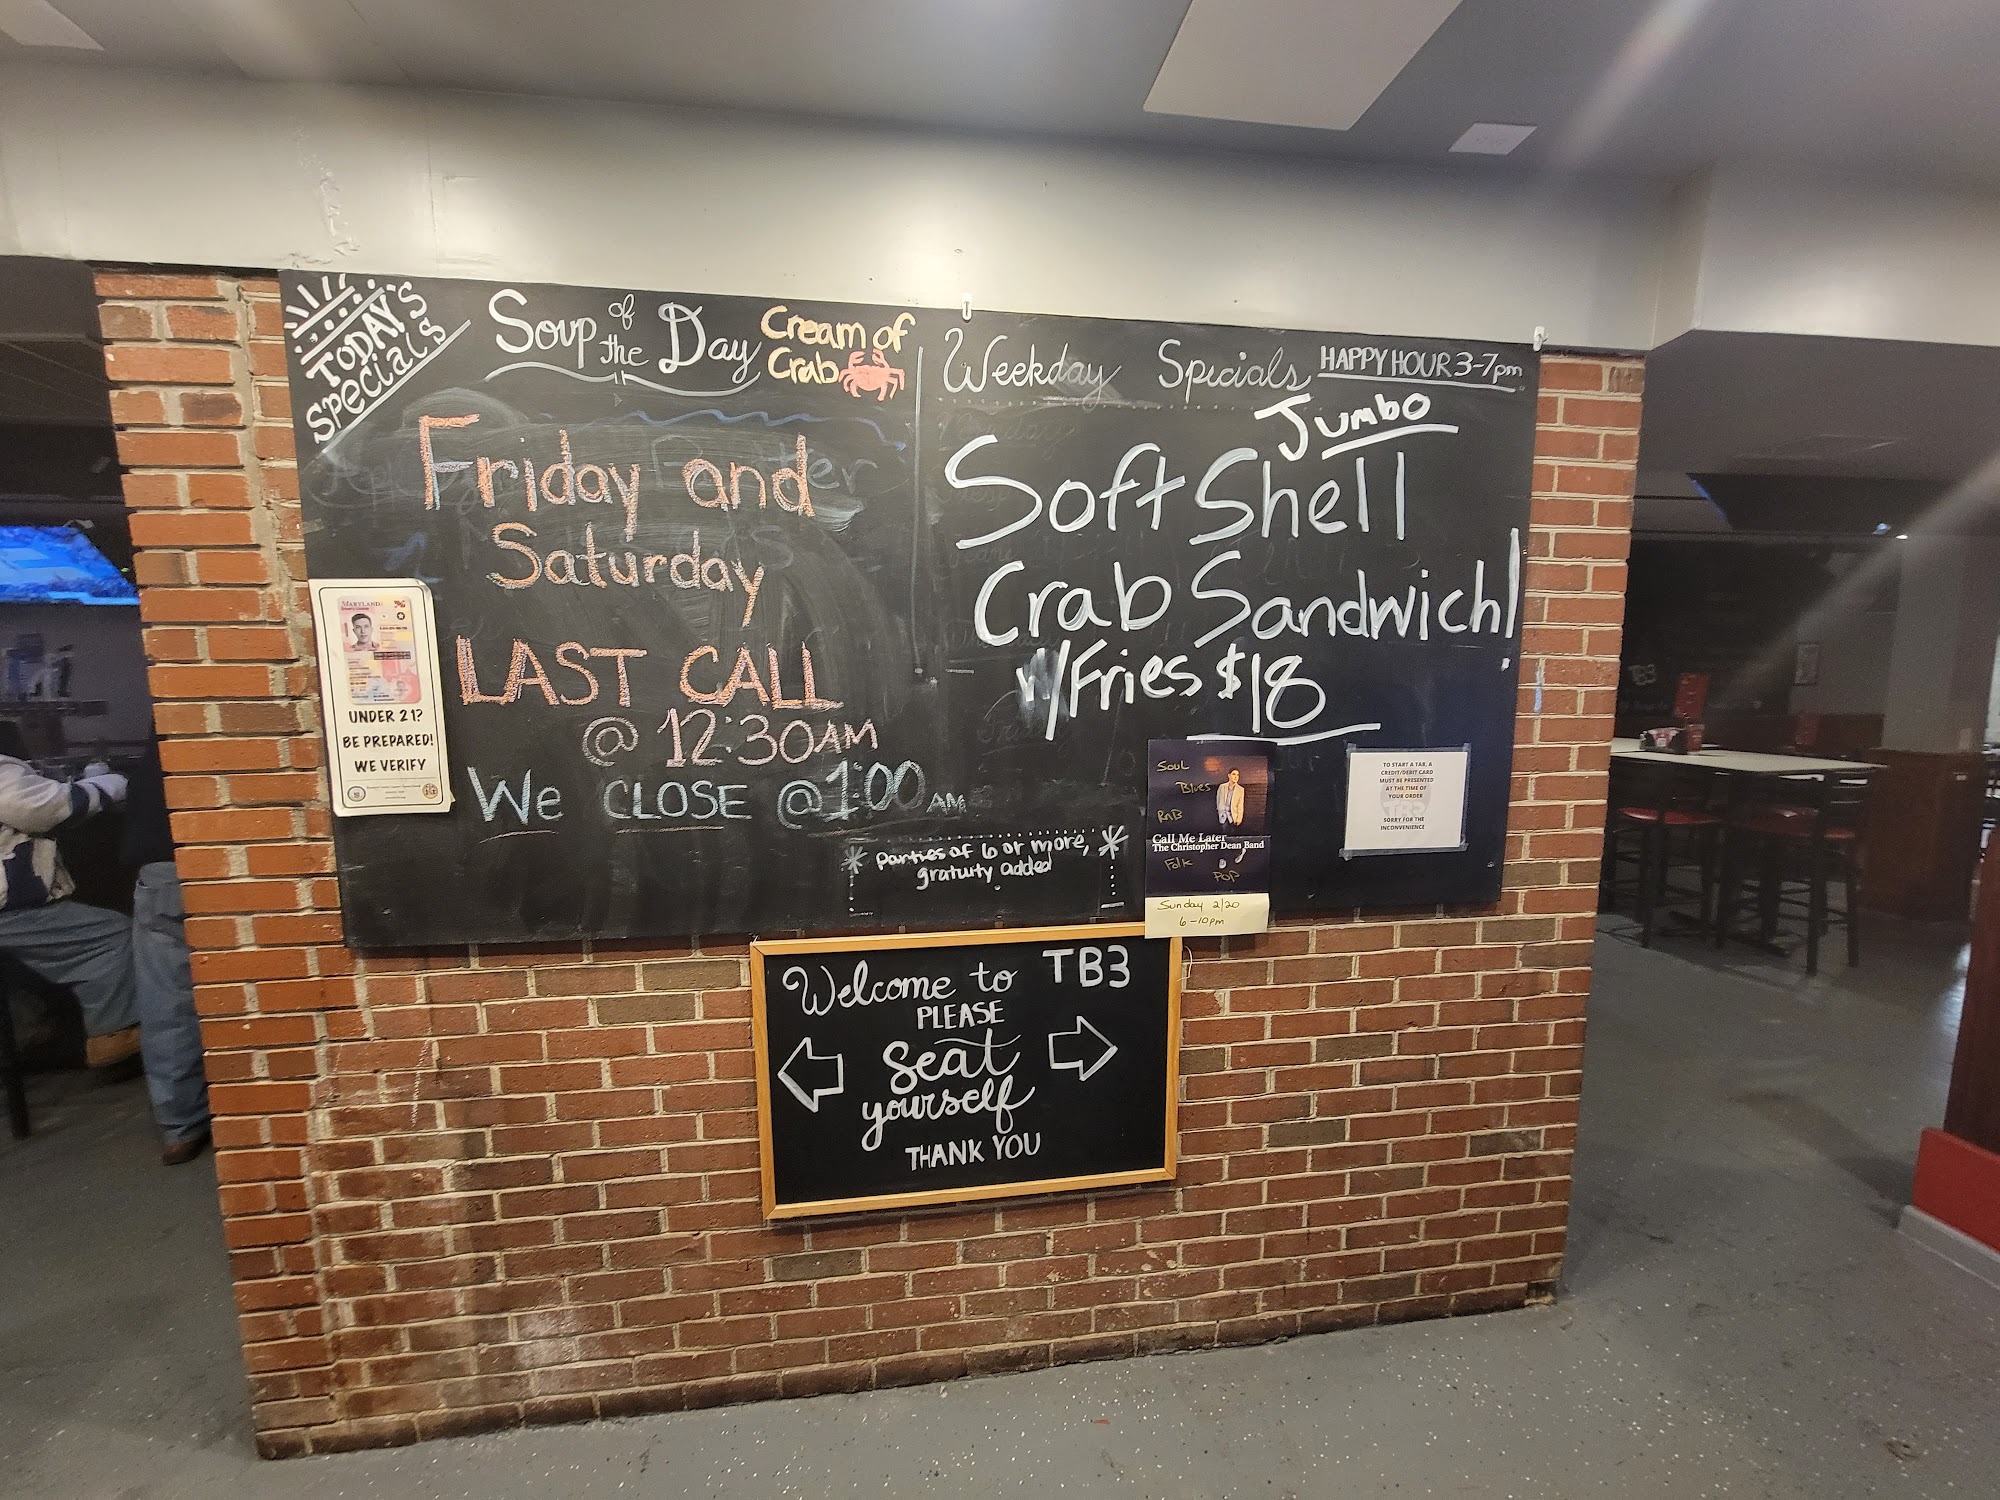 TODAY'S
Specials
Soup of the Day
Cream of
Crab
Friday and
Saturday
LAST CALL
@ 12:30AM
We CLOSE @ 1:00 AM
parties of 6 or more,
gratuity added
Weekday Specials
HAPPY HOUR 3-7pm
Jumbo
Soft Shell
Crab Sandwich!
w/Fries $18
MARYLAND
UNDER 21?
BE PREPARED!
WE VERIFY
Soul
Blues
RnB
Call Me Later
The Christopher Dean Band
Folk
POP
Sunday 2/20
6-10pm
TO START A TAB, A
CREDIT/DEBIT CARD
MUST BE PRESENTED
AT THE TIME OF
YOUR ORDER
SORRY FOR THE
INCONVENIENCE
Welcome to TB3
PLEASE
seat
yourself
THANK YOU
TB3